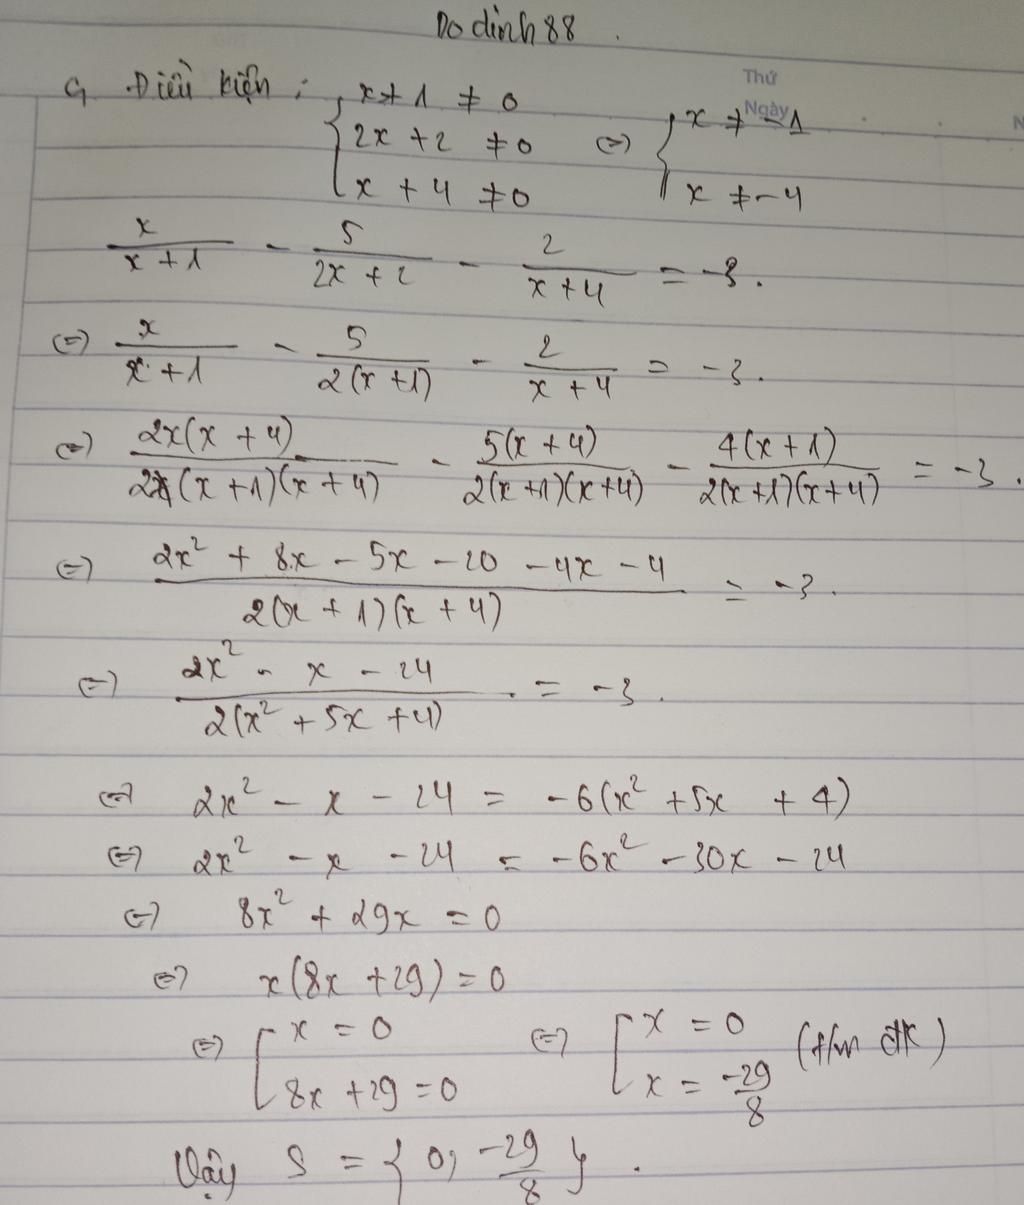 Do dinh 88.
Thứ
Ngày
G, Điều kiện : { x + 1 ≠ 0
2x + 2 ≠ 0 (=) { x ≠ -1
x + 4 ≠ 0 x ≠ -4
x/(x + 1) - 5/(2x + 2) - 2/(x + 4) = -3.
(=) x/(x + 1) - 5/(2(x + 1)) - 2/(x + 4) = -3.
(=) 2x(x + 4)/(2(x + 1)(x + 4)) - 5(x + 4)/(2(x + 1)(x + 4)) - 4(x + 1)/(2(x + 1)(x + 4)) = -3.
(=) (2x² + 8x - 5x - 20 - 4x - 4)/(2(x + 1)(x + 4)) = -3.
(=) (2x² - x - 24)/(2(x² + 5x + 4)) = -3.
(=) 2x² - x - 24 = -6(x² + 5x + 4)
(=) 2x² - x - 24 = -6x² - 30x - 24
(=) 8x² + 29x = 0
(=) x(8x + 29) = 0
(=) [ x = 0 (=) [ x = 0 (t/m đk)
8x + 29 = 0 x = -29/8
Vậy S = { 0; -29/8 }.